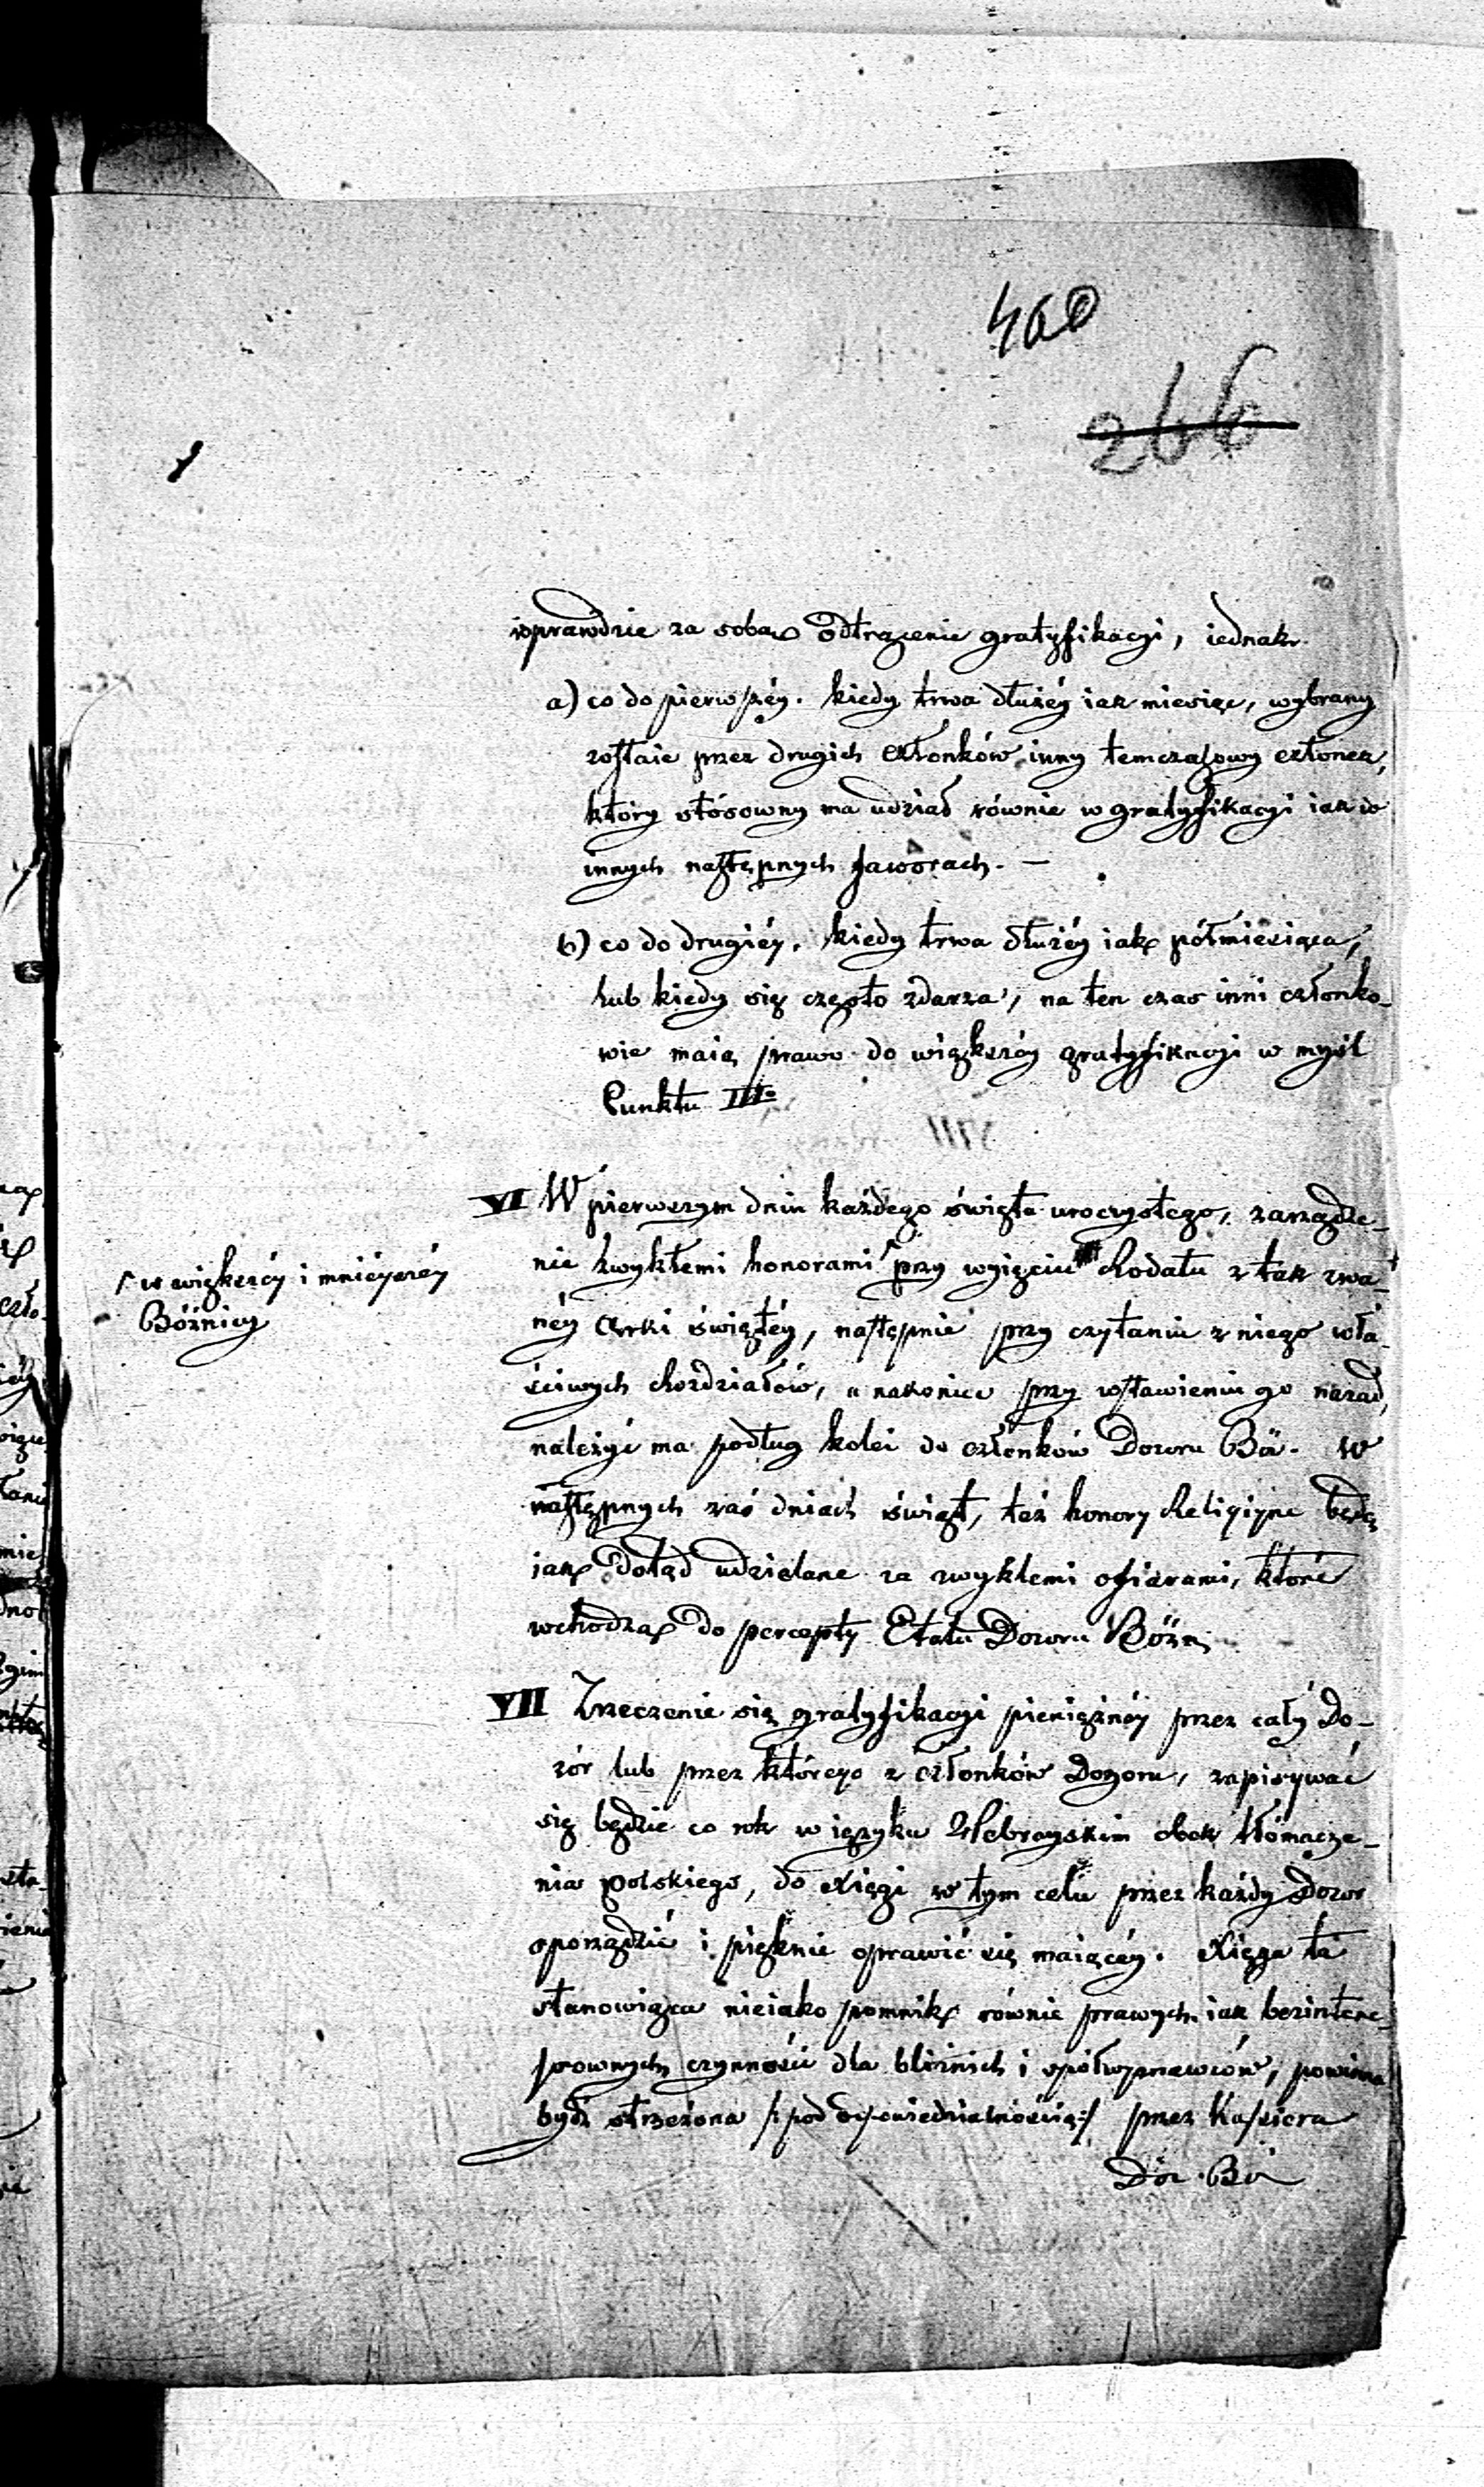 460
266
wprawdzie za sobą odtrącenie gratyfikacyi, iednak.
a) co do pierwszéy. kiedy trwa dłużéy iak miesiąc, wybrany
zostaie przez drugich członków inny temczasowy członek,
który stósowny ma udział równie w gratyfikacyi iak w
innych następnych faworach. —
b) co do drugiéy. kiedy trwa dłużéy iak półmiesiąca,
lub kiedy się często zdarza, na ten czas inni członko-
wie maią prawo do większéy gratyfikacyi w myśl
Punktu III.
VI W pierwszym dniu każdego święta uroczystego, zarządze-
nie zwykłemi honorami przy wyięciu Rodału z tak zwa-
néy Arki świętéy, następnie przy czytaniu z niego wła-
ściwych Rozdziałów, a nakoniec przy wstawieniu go nazad,
należyć ma podług kolei do członków Dozoru Bó. W
następnych zaś dniach świąt, też honory Religiyne będą
iak dotąd udzielane za zwykłemi ofiarami, które
wchodzą do percepty Etatu Dozoru Bóżn.
┌ w większéy i mnieyszéy
Bóżnicy
VII Zrzeczenie się gratyfikacyi pieniężnéy przez cały Do-
zór lub przez którego z członków Dozoru, zapisywać
się będzie co rok w ięzyku Hebrayskim obok tłómacze-
nia polskiego, do Xięgi w tym celu przez każdy Dozor
sporządzić i pięknie oprawić się maiącéy. Xięga ta
stanowiąca nieiako pomnik równie prawych iak bezintere-
sownych czynności dla bliźnich i spółwyznawców, powinna
bydź strzeżona /: pod odpowiedzialnością :/ przez Kassiera
Doz. Bó